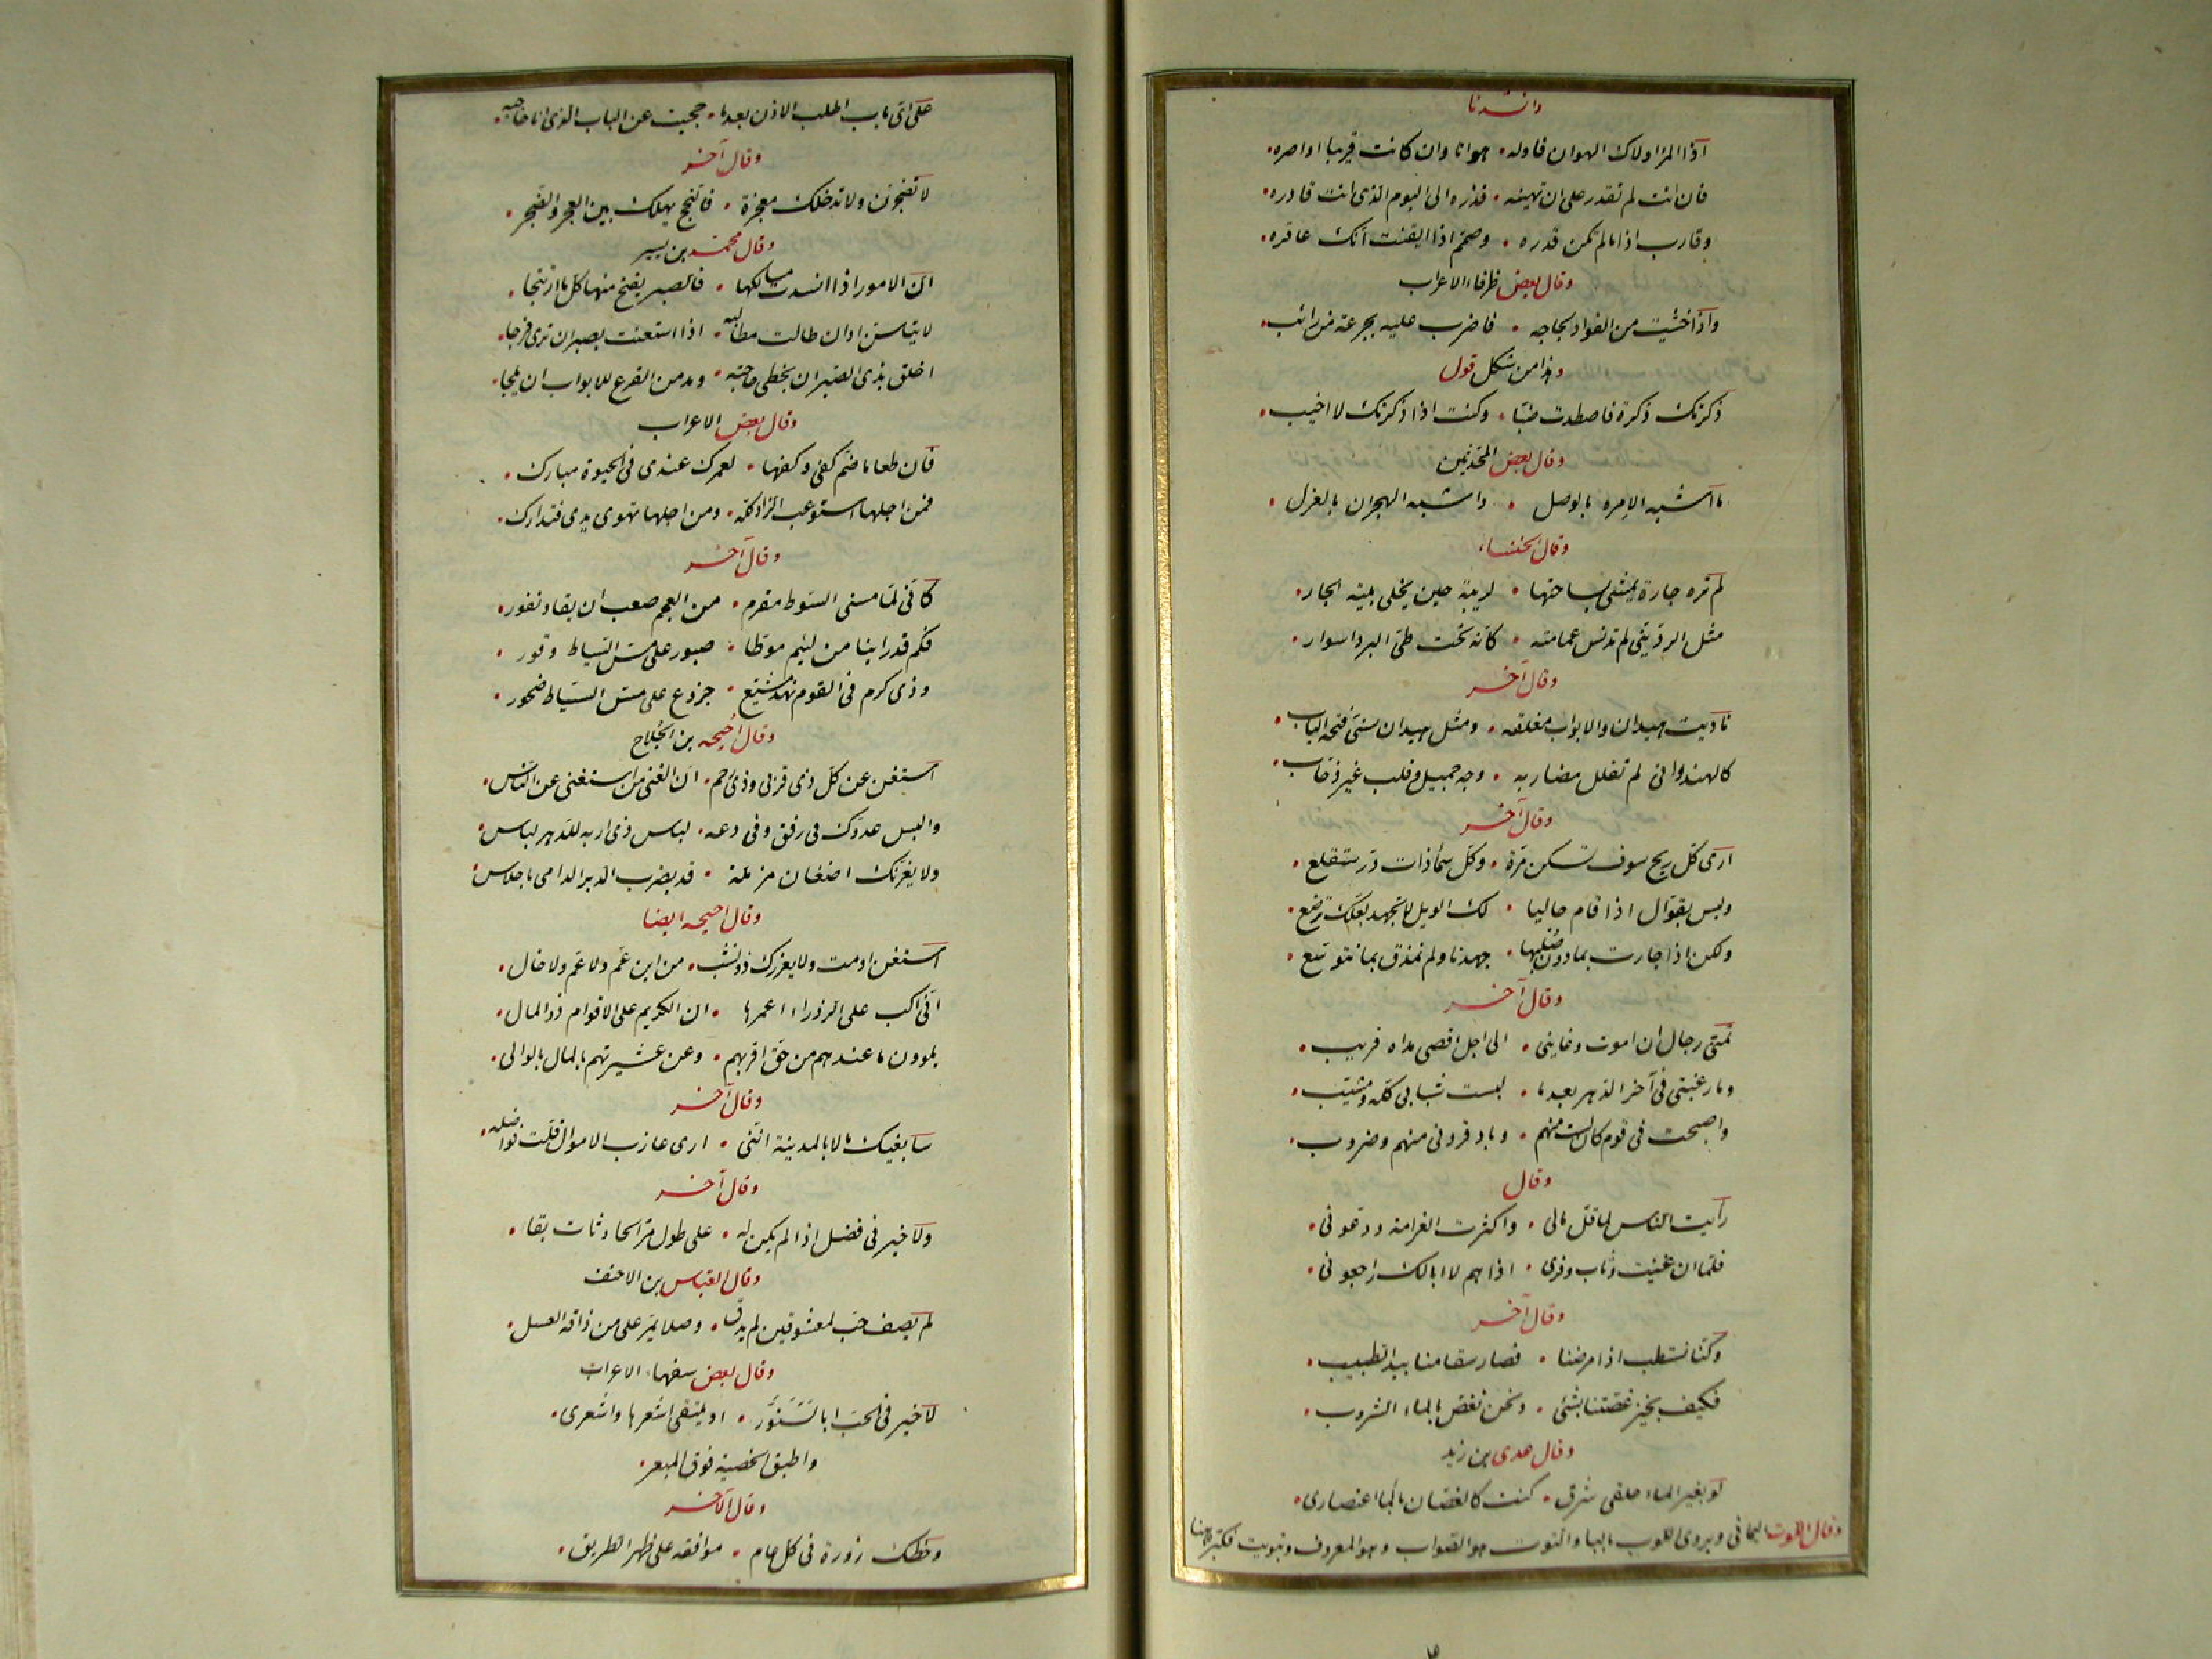 وانشدنا
اذا المرء اولاك الهوان فاوله • هوانا وان كانت قريبا اواصره •
فان انت لم تقدر على ان تهينه • فذره الى اليوم الذى انت قادره •
وقارب اذا ما لم تكن قدرة • وصمم اذا ايقنت انك عاقره •
وقال بعض ظرفاء الاعراب
واذا خشيت من الفواد لجاجه • فاضرب عليه بجرعة من رائب •
وهذا من شكل قول
ذكرتك ذكرة فاصطدت ضبا • وكنت اذا ذكرتك لا اخيب •
وقال بعض المحدثين
ما اشبه الامره بالوصل • واشبه الهجران بالعزل •
وقال الخنساء
لم تره جارة يمشى بساحتها • لريبة حين يخلى بيته الجار •
مثل الردينى لم تدنس عمامته • كانه تحت طى البرد اسوار •
وقال آخر
ناديت هيدان والابواب مغلقه • ومثل هيدان سنى فتحه الباب •
كالهندوانى لم تفلل مضاربه • وجه جميل وقلب غير وجاب •
وقال آخر
ارى كل ريح سوف تسكن مرة • وكل سماء ذات در ستقلع •
وليس بقوال اذا قام حالبا • لك الويل لا تجهد لعلك ترضع •
ولكن اذا جارت بما دون حلبها • جهدنا ولم نمذق بما نتوسع •
وقال آخر
تمنى رجال ان اموت وغايتى • الى اجل اقصى مداه قريب •
وما رغبتى فى آخر الدهر بعد ما • لبست شبابى كله ومشيب •
واصبحت فى قوم كان لست منهم • وباد قرونى منهم وضروب •
وقال
رأيت الناس لما قل مالى • واكثرت الغرامة ودعونى •
فلما ان غنيت وثاب وفرى • اذا هم لا ابا لك راجعونى •
وقال آخر
وكنا نستطب اذا مرضنا • فصار سقامنا بيد الطبيب •
فكيف نجيز غصتنا بشئ • ونحن نغص بالماء الشروب •
وقال عدى بن زيد
لو بغير الماء حلقى شرق • كنت كالغصان بالماء اعتصارى •
وقال التوت اليمانى ويروى للوب بالبا والتوت هو الصواب وهو المعروف وتبويت فكتبه هنا
على اى باب اطلب الاذن بعد ما • حجبت عن الباب الذى انا حاجبه •
وقال آخر
لا تضجرن ولا تدخلك معجزة • فالنجح يهلك بين العجز والضجر •
وقال محمد بن يسير
ان الامور اذا انسدت مسالكها • فالصبر يفتح منها كل ما ارتتجا •
لا تياسن وان طالت مطالبه • اذا استعنت بصبر ان ترى فرجا •
اخلق بذى الصبر ان يحظى بحاجته • ومدمن القرع للابواب ان يلجا •
وقال بعض الاعراب
فان طعاما ضم كفى وكفها • لعمرك عندى فى الحيوة مبارك •
فمن اجلها استوعب الزاد كله • ومن اجلها تهوى يدى فتدارك •
وقال آخر
كانى لما مسنى السوط مقرم • من العجم صعب ان يقاد نفور •
فكم قد راينا من لئيم موطا • صبور على مس السياط وقور •
وذى كرم فى القوم نهد مشيع • جزوع على مس السياط ضجور •
وقال احيحه بن الجلاح
استغن عن كل ذى قربى وذى رحم • ان الغنى من استغنى عن الناس •
والبس عدوك فى رفق وفى دعه • لباس ذى اربه للدهر لباس •
ولا يغرنك اضغان مزملة • قد يضرب الدبر الدامى باحلاس •
وقال احيحه ايضا
استغن او مت ولا يغررك ذو نشب • من ابن عم ولا عم ولا خال •
انى اكب على الزوراء اعمرها • ان الكريم على الاقوام ذو المال •
يلوون ما عندهم من حق اقربهم • وعن عشيرتهم بالمال بالوالى •
وقال آخر
سابغيك مالا بالمدينة اننى • ارى عازب الاموال قلت فواضله •
وقال آخر
ولا خير فى فضل اذا لم يكن له • على طول مر الحادثات بقا •
وقال العباس بن الاحنف
لم يصف حب لمعشوقين لم يذق • وصلا يمر على من ذاقه العسل •
وقال بعض سفهاء الاعراب
لا خير فى الحب ابا السنور • او يلتقى اشعرها واشعرى •
واطبق الخصية فوق المبعر •
وقال الآخر
وحظك زورة فى كل عام • موافقة على ظهر الطريق •